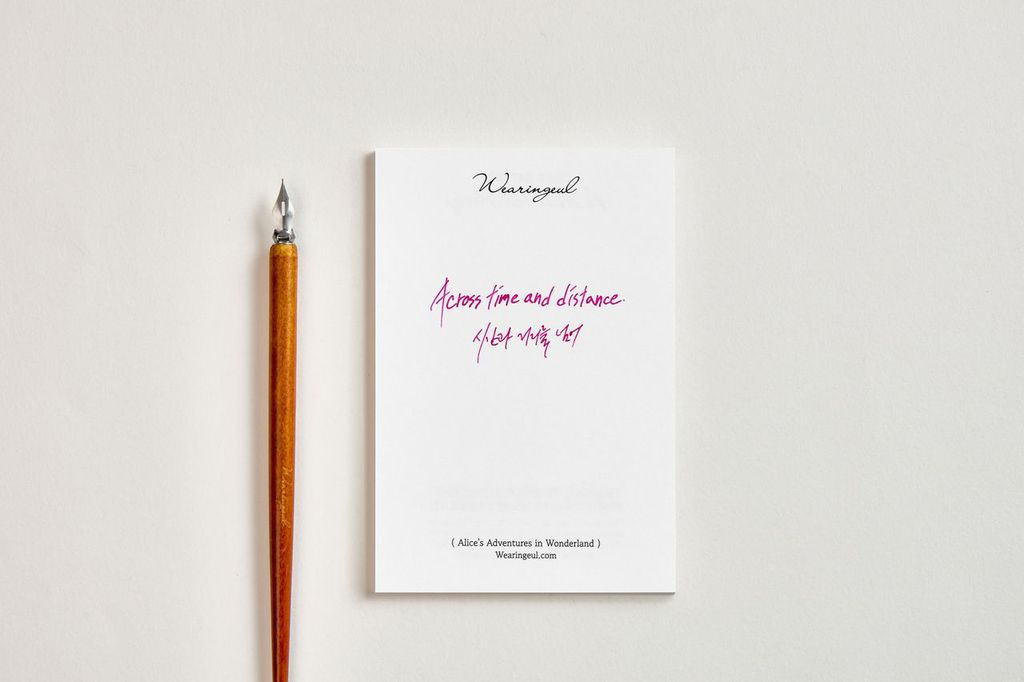 Wearingeul
Across time and distance.
시간과 거리를 넘어
( Alice's Adventures in Wonderland )
Wearingeul.com
Wearingeul